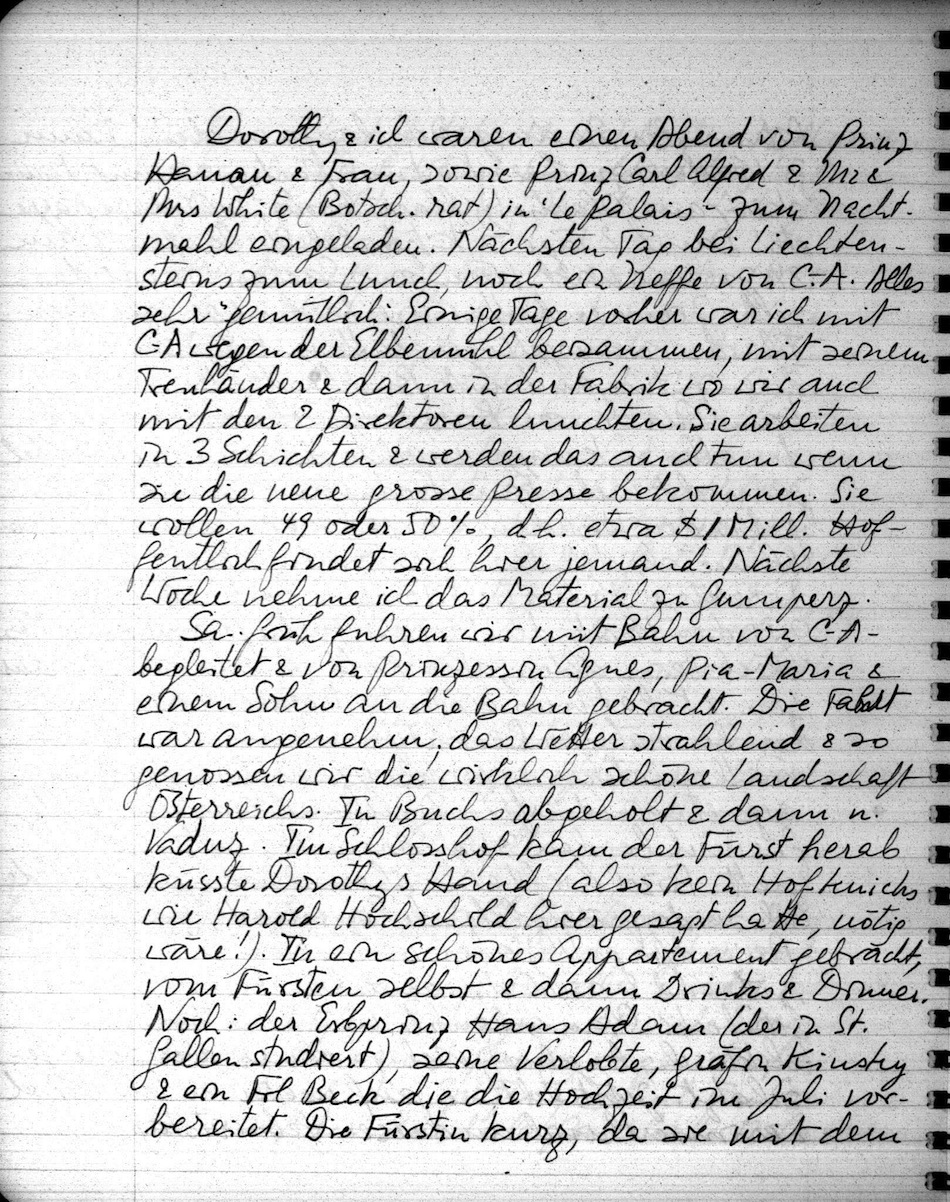 Dorothy & ich waren einen Abend von Prinz
Hanau & Frau, sowie Prinz Carl Alfred & Mr &
Mrs White (Botsch. rat) in 'Le Palais' zum Nacht-
mahl eingeladen. Nächsten Tag bei Liechten-
steins zum Lunch, noch ein Neffe von C.A. Alles
sehr gemütlich. Einige Tage vorher war ich mit
C-A wegen der Elbemühl beisammen, mit seinem
Treuhänder & dann in der Fabrik wo wir auch
mit den 2 Direktoren lunchten. Sie arbeiten
in 3 Schichten & werden das auch tun wenn
sie die neue grosse Presse bekommen. Sie
wollen 49 oder 50%, d.h. etwa $ 1 Mill. Hof-
fentlich findet sich hier jemand. Nächste
Woche nehme ich das Material zu Gumperz.
Sa. früh fuhren wir mit Bahn von C-A-
begleitet & von Prinzessin Agnes, Pia-Maria &
einem Sohn an die Bahn gebracht. Die Fahrt
war angenehm, das Wetter strahlend & so
genossen wir die wirklich schöne Landschaft
Österreichs. In Buchs abgeholt & dann n.
Vaduz. Im Schlosshof kam der Fürst herab
küsste Dorothys Hand (also kein Hofknicks
wie Harold Hochschild hier gesagt hatte, nötig
wäre!). In ein schönes Appartement gebracht,
vom Fürsten selbst & dann Drinks & Dinner.
Noch: der Erbprinz Hans Adam (der in St.
Gallen studiert), seine Verlobte, Gräfin Kinsky
& ein Frl Beck die die Hochzeit im Juli vor-
bereitet. Die Fürstin kurz, da sie mit dem